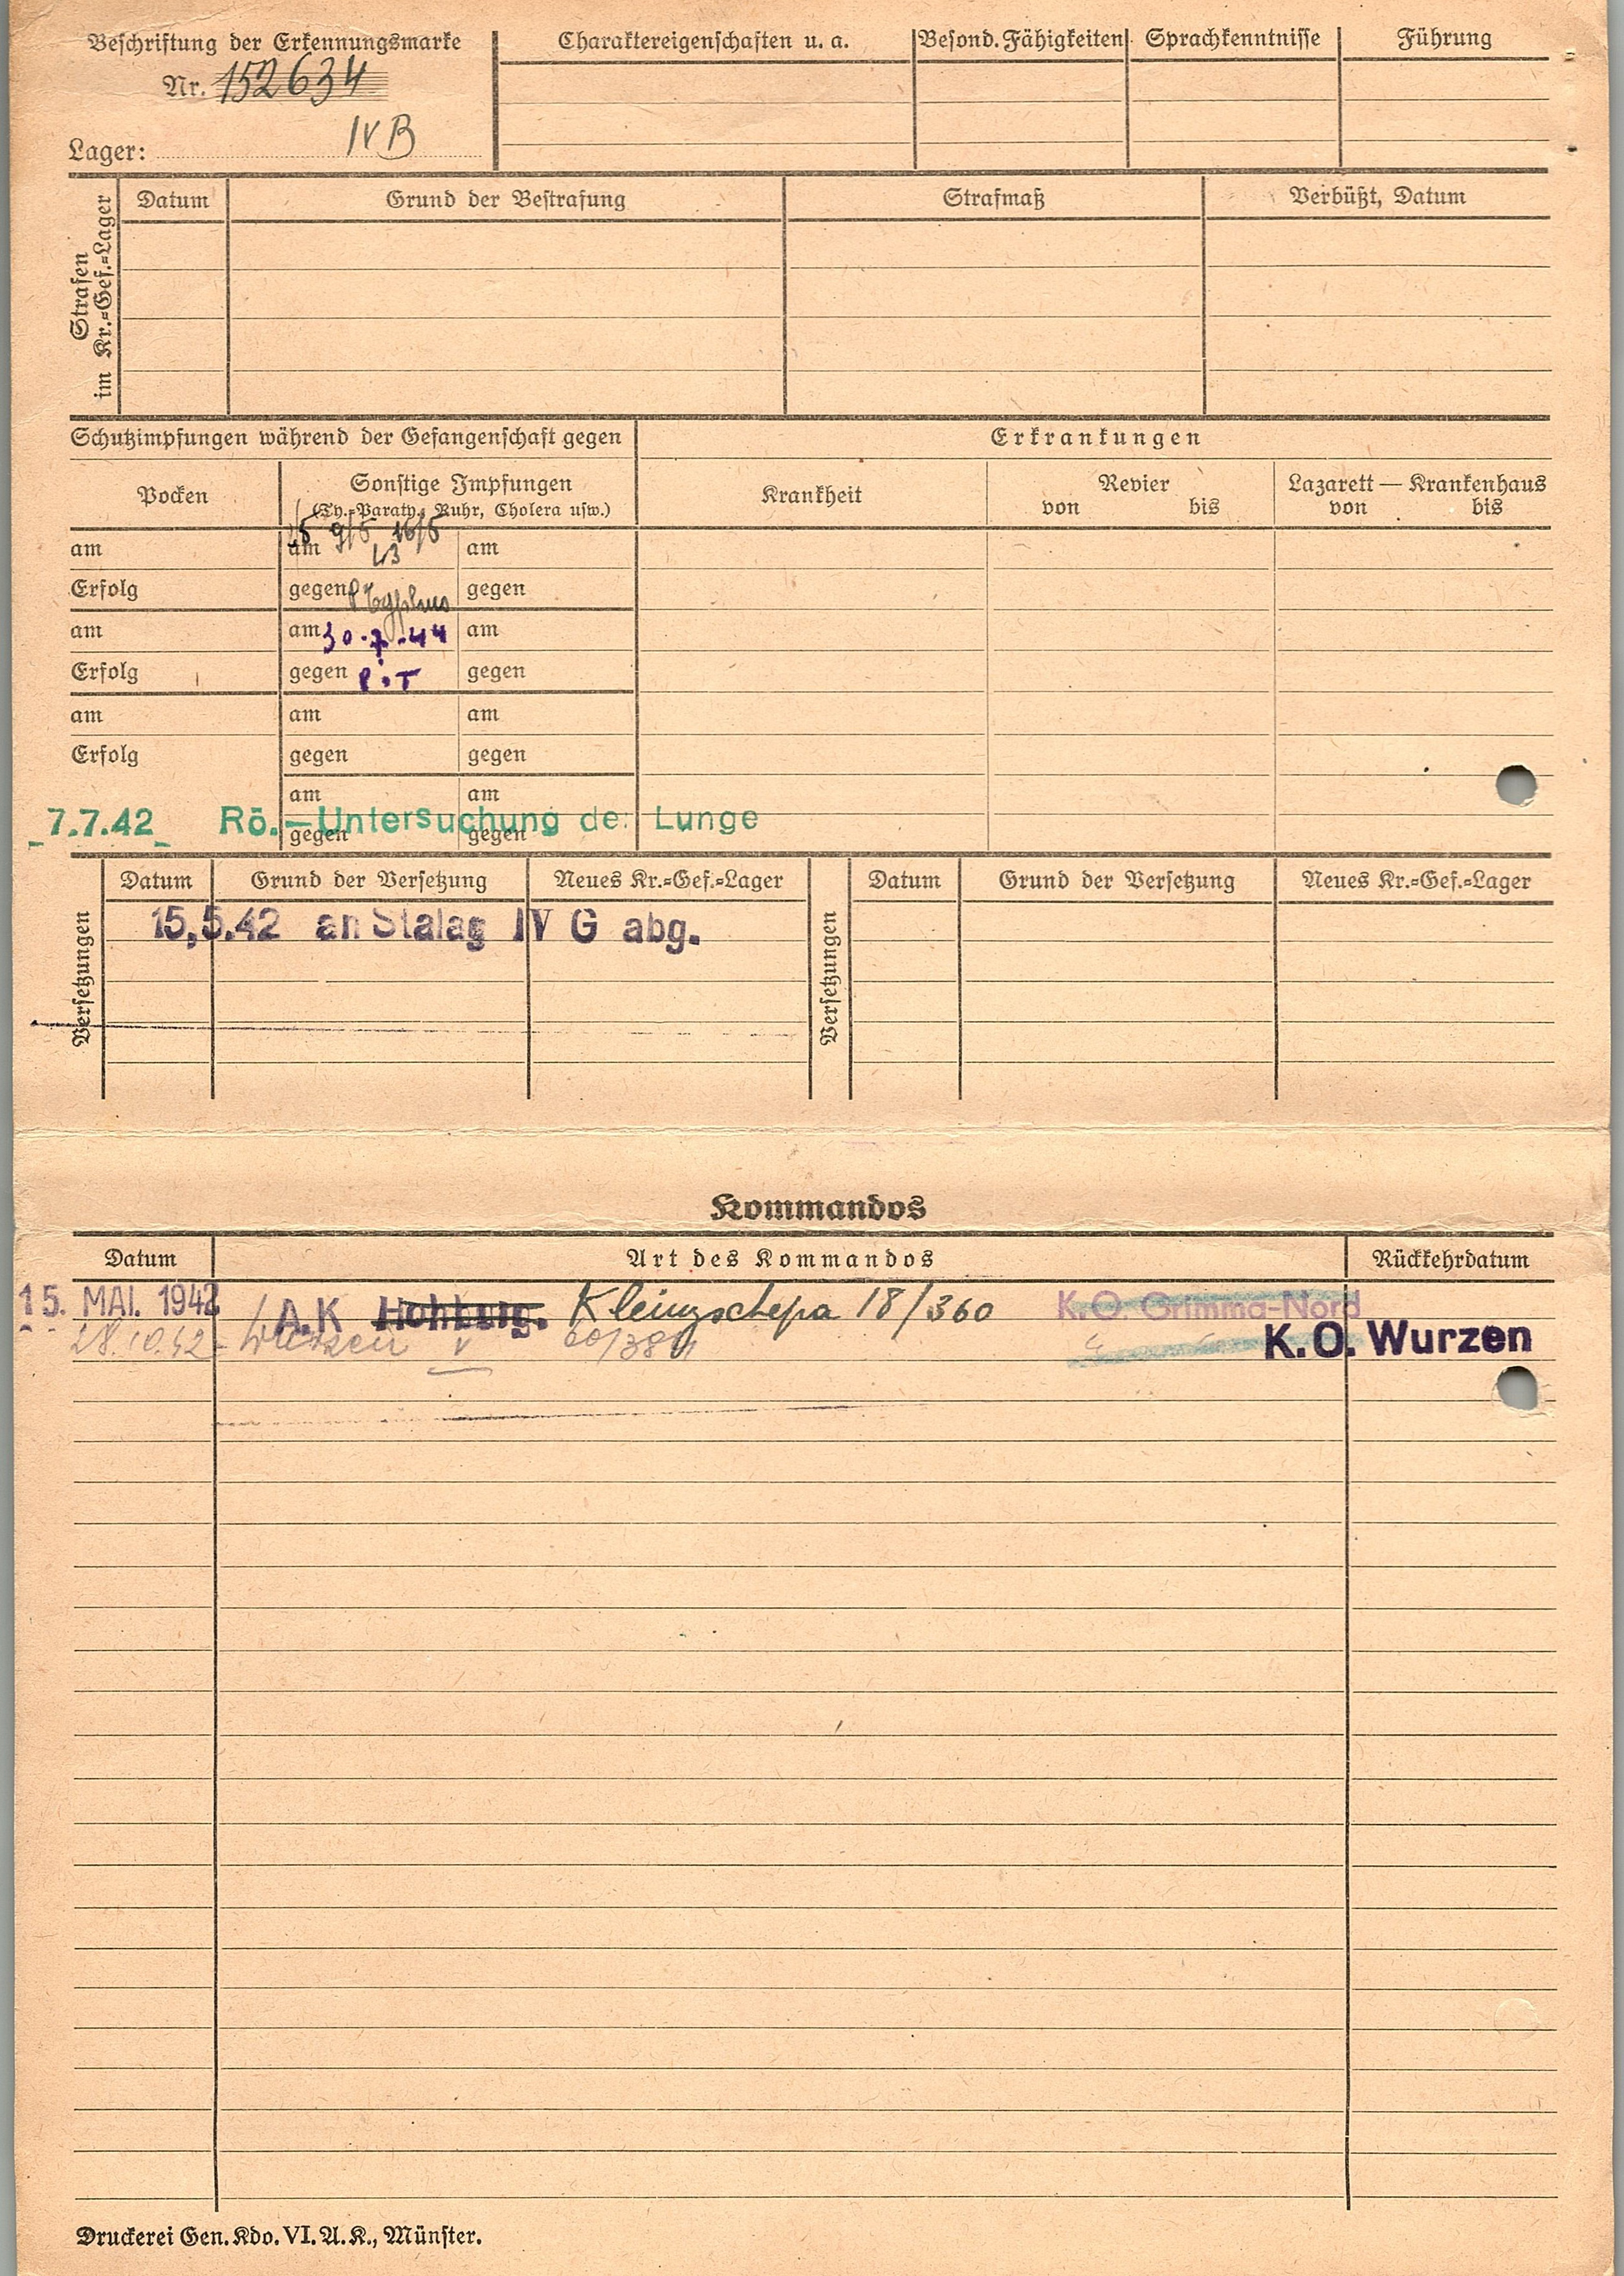 Beschriftung der Erkennungsmarke
Nr. 152634
Lager: IV B
Charaktereigenschaften u. a.
Besond. Fähigkeiten
Sprachkenntnisse
Führung
Strafen
im Kr.=Gef.=Lager
Datum
Grund der Bestrafung
Strafmaß
Verbüßt, Datum
Schutzimpfungen während der Gefangenschaft gegen
Erkrankungen
Pocken
Sonstige Impfungen
(Ty.=Paraty., Ruhr, Cholera usw.)
Krankheit
Revier
von bis
Lazarett — Krankenhaus
von bis
am am 9/5 16/5 43 am
Erfolg gegen Typhus gegen
am am 30.7.44 am
Erfolg gegen P.T gegen
am am am
Erfolg gegen gegen
am am
gegen gegen
7.7.42 Rö.—Untersuchung der Lunge
Versetzungen
Datum
Grund der Versetzung
Neues Kr.=Gef.=Lager
Versetzungen
Datum
Grund der Versetzung
Neues Kr.=Gef.=Lager
15.5.42 an Stalag IV G abg.
Kommandos
Datum
Art des Kommandos
Rückkehrdatum
15. MAI. 1942 A.K Hohburg. Kleinzschepa 18/360 K.O. Grimma-Nord
28.10.42 Wurzen K.O. Wurzen
Druckerei Gen. Kdo. VI. A. K., Münster.